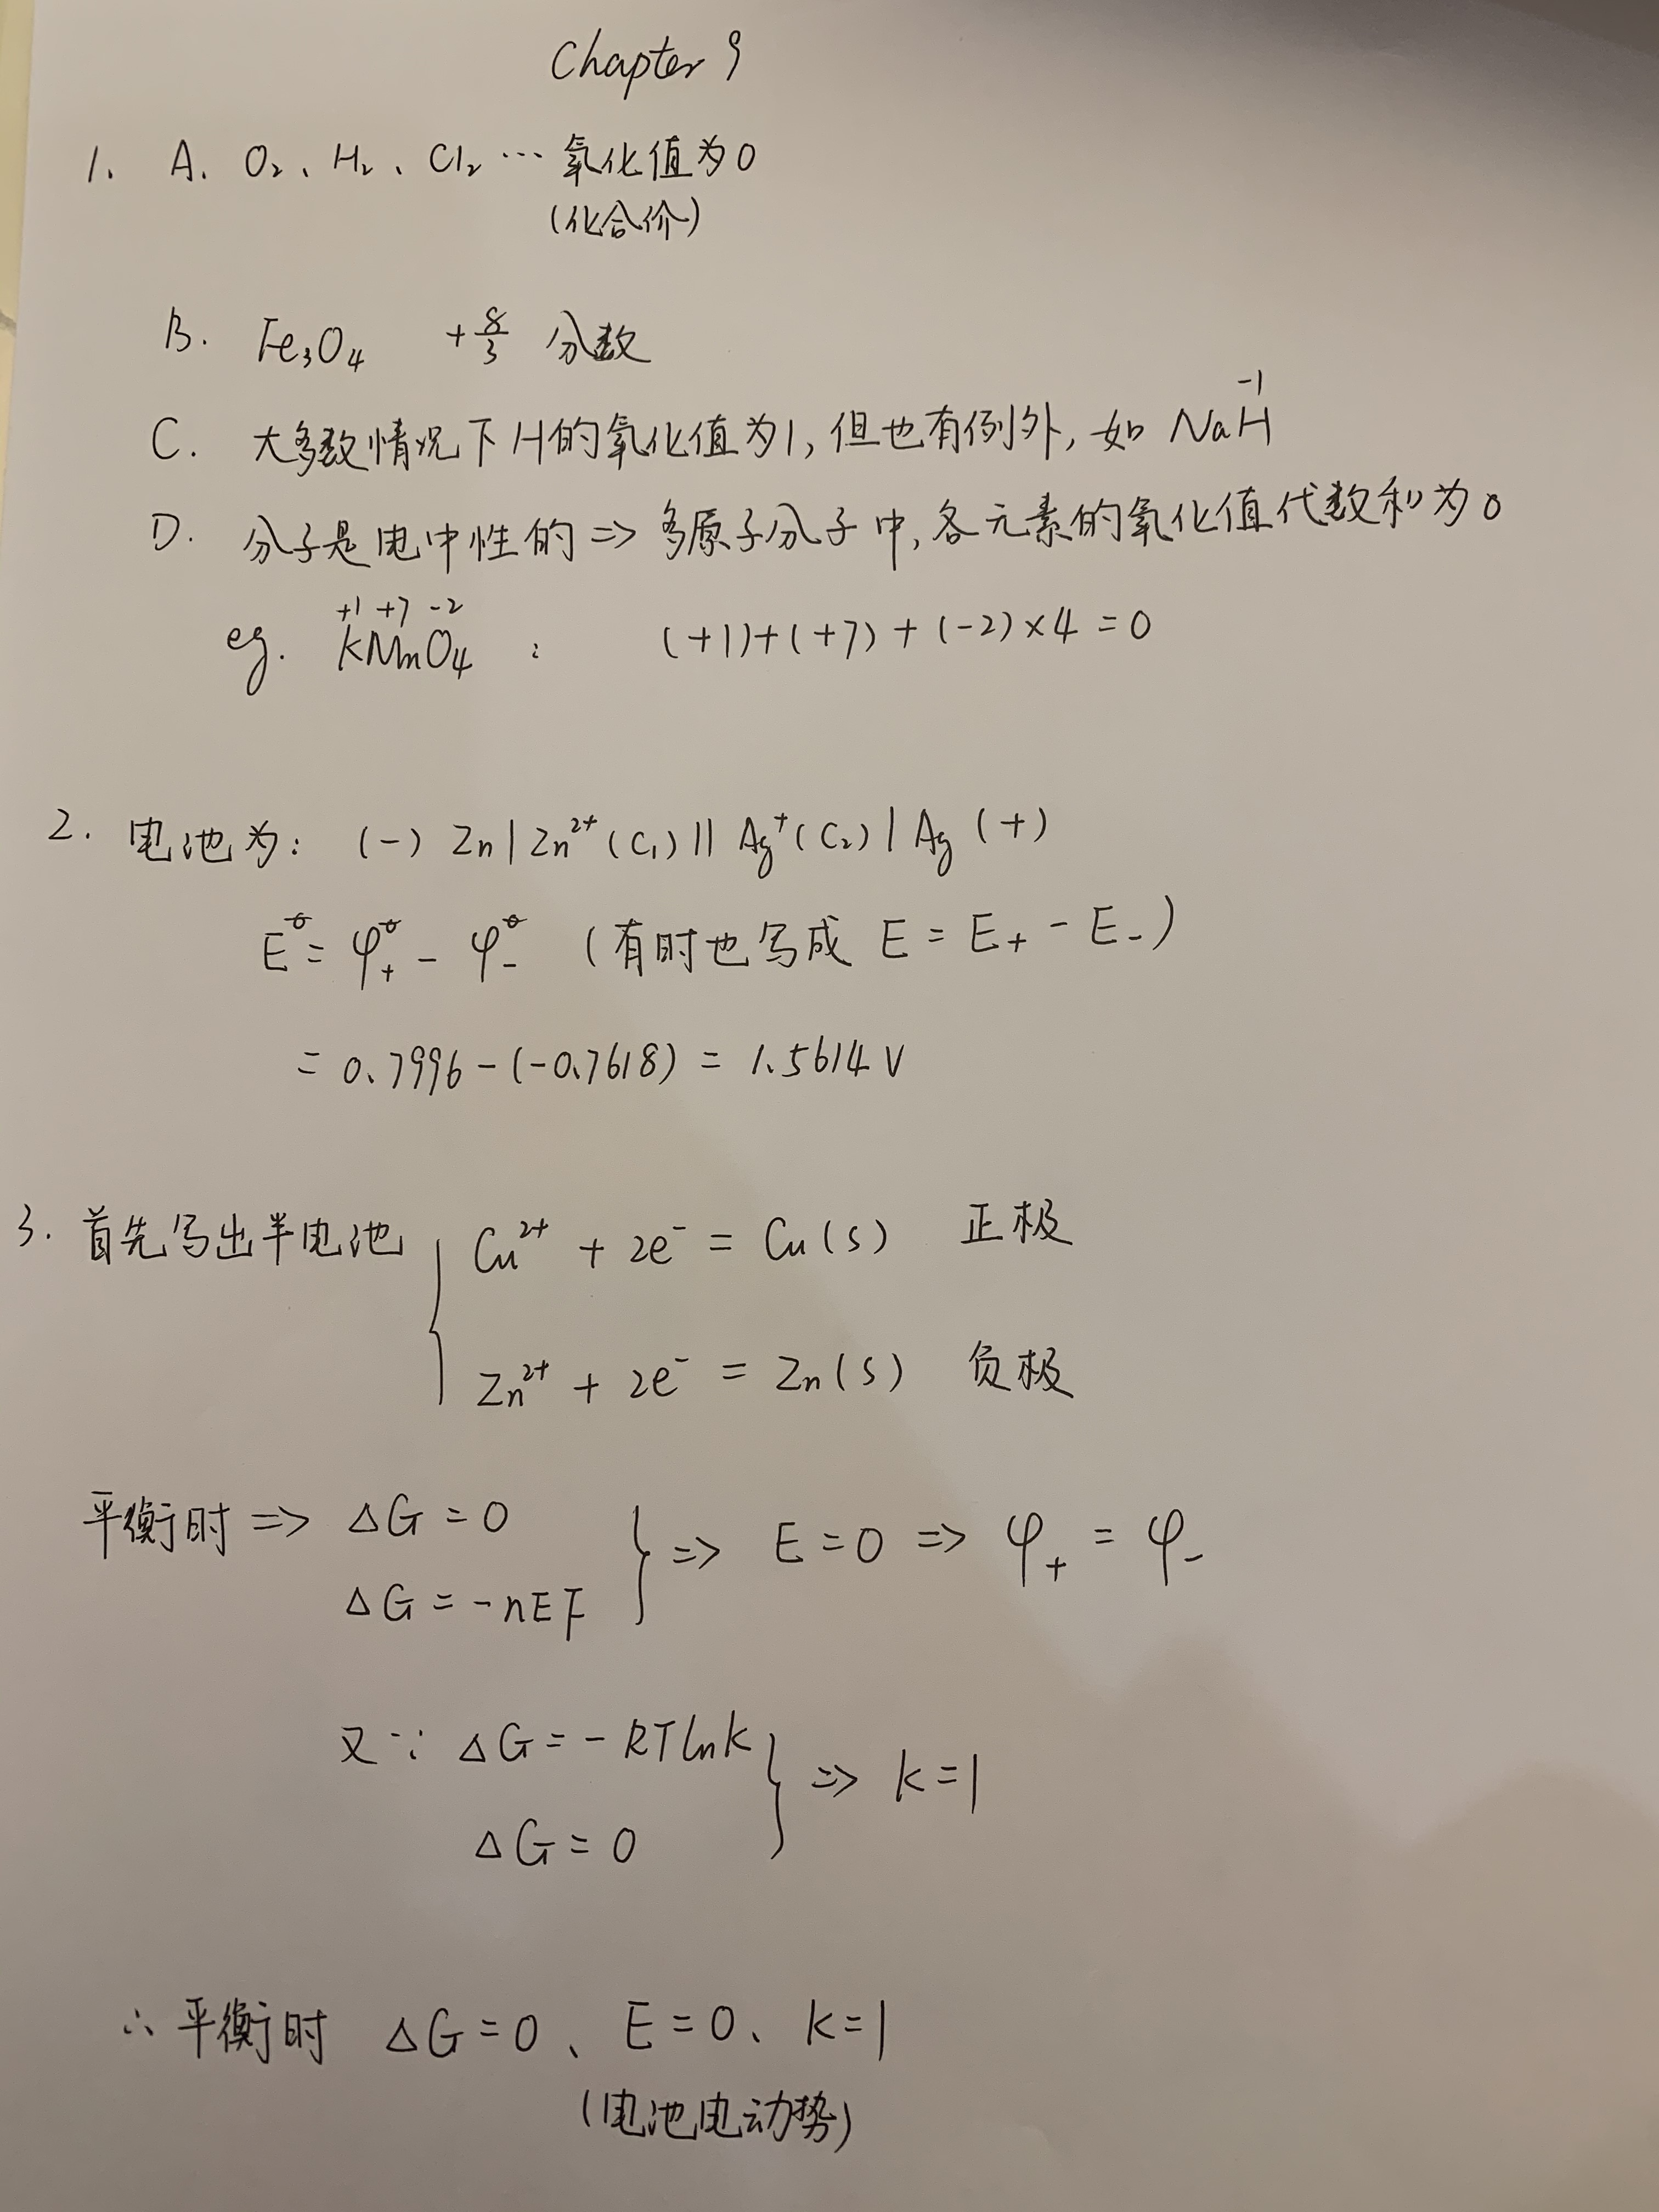 Chapter 9
1. A. O₂、H₂、Cl₂ … 氧化值为0
(化合价)
B. Fe₃O₄ +8/3 分数
-1
C. 大多数情况下H的氧化值为1, 但也有例外, 如 NaH
D. 分子是电中性的 => 多原子分子中, 各元素的氧化值代数和为0
+1 +7 -2
eg. KMnO₄ : (+1)+(+7)+(-2)×4=0
2. 电池为: (-) Zn | Zn²⁺(C₁) || Ag⁺(C₂) | Ag (+)
E^θ = φ₊^θ - φ₋^θ (有时也写成 E = E₊ - E₋)
= 0.7996-(-0.7618) = 1.5614 V
3. 首先写出半电池 { Cu²⁺ + 2e⁻ = Cu(s) 正极
Zn²⁺ + 2e⁻ = Zn(s) 负极
平衡时 => ΔG = 0
ΔG = -nEF } => E = 0 => φ₊ = φ₋
又∵ ΔG = - RTlnk
ΔG = 0 } => k=1
∴ 平衡时 ΔG = 0、E = 0、k=1
(电池电动势)